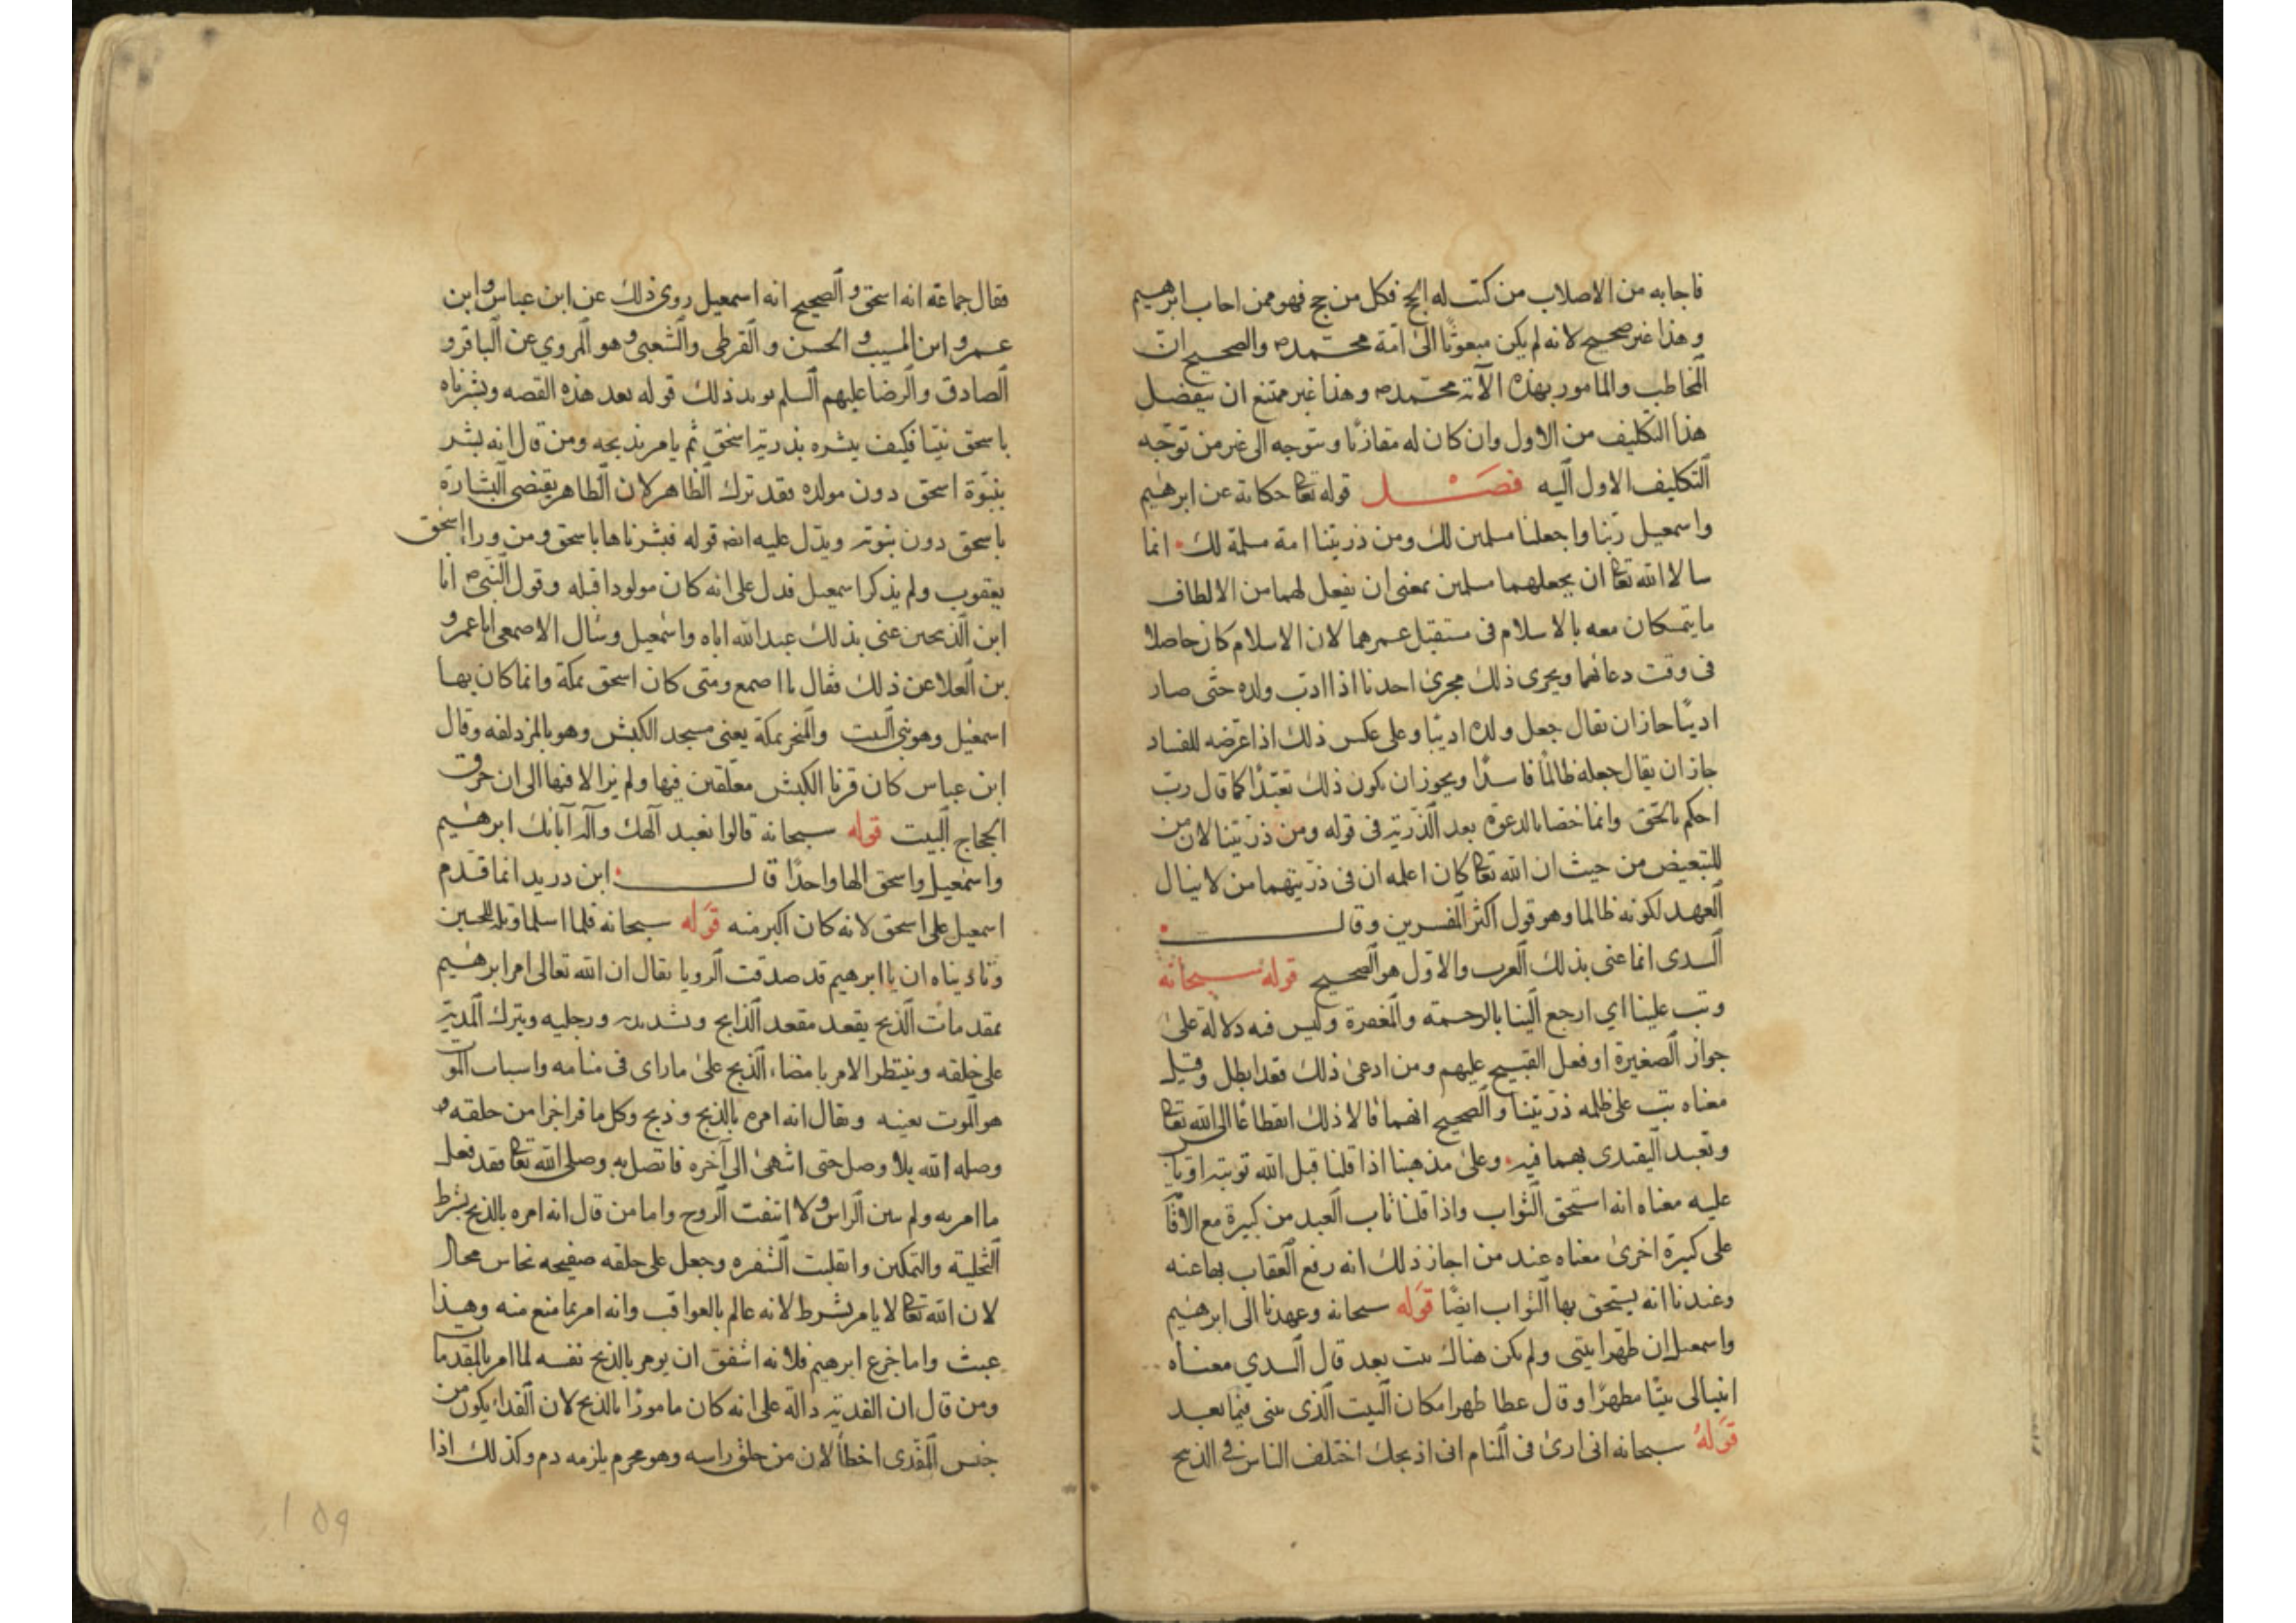 فاجابه من الاصلاب من كتب له الحج فكل من حج فهو ممن اجاب ابرهيم
وهذا غير صحيح لانه لم يكن مبعوثًا الى امة محمدص والصحيح ان
المخاطب والمامور بهذه الآية محمدص وهذا غير ممتنع ان ينفصل
هذا التكليف من الاول وان كان له مقارنًا ويتوجه الى غير من توجّه
التكليف الاول اليه فصل قوله تعا حكاية عن ابرهيم
واسمعيل ربّنا واجعلنا مسلمين لك ومن ذريتنا امة مسلمة لك انما
سالا الله تعا ان يجعلهما مسلمين بمعنى ان يفعل لهما من الالطاف
ما يتمسكان معه بالاسلام فى مستقبل عمرهما لان الاسلام كان حاصلا
فى وقت دعائهما ويجرى ذلك مجرى احدنا اذا ادّب ولده حتّى صار
اديبًا جاز ان يقال جعل ولده اديبًا وعلى عكس ذلك اذا عرّضه للفساد
جاز ان يقال جعله ظالمًا فاسدًا ويجوز ان يكون ذلك تعبّدًا كما قال ربّ
احكم بالحق وانما خصا بالدعوة بعد الذرية فى قوله ومن ذرّيتنا لان من
للتبعيض من حيث ان الله تعا كان اعلمه ان فى ذرّيتهما من لا ينال
العهد لكونه ظالما وهو قول اكثر المفسرين وقال
السدى انما عنى بذلك العرب والاوّل هو الصحيح قوله سبحانه
وتب علينا اي ارجع الينا بالرحمة والمغفرة وليس فيه دلالة على
جواز الصغيرة او فعل القبيح عليهم ومن ادعى ذلك فقد ابطل وقيل
معناه تب على ظلمه ذرّيتنا والصحيح انهما قالا ذلك انقطاعًا الى الله تعا
وتعبد اليقتدى بهما فيه وعلى مذهبنا اذا قلنا قبل الله توبته او تاب
عليه معناه انه استحق الثواب واذا قلنا تاب العبد من كبيرة مع الاقا
على كبيرة اخرى معناه عند من اجاز ذلك انه رفع العقاب بها عنه
وعندنا انه يستحق بها الثواب ايضًا قوله سبحانه وعهدنا الى ابرهيم
واسمعيل ان طهّرا بيتى ولم يكن هناك بيت بعد قال السدي معناه
ابنيا لى بيتًا مطهرًا وقال عطا طهرا مكان البيت الذى يبنى فيما بعد
قوله سبحانه انى ارى فى المنام انى اذبحك اختلف الناس فى الذبيح
فقال جماعة انه اسحق والصحيح انه اسمعيل روى ذلك عن ابن عباس وابن
عمر وابن المسيب والحسن والقرظى والشعبى وهو المروي عن الباقر و
الصادق والرضا عليهم السلم يويد ذلك قوله بعد هذه القصه وبشرناه
باسحق نبيّا فكيف يبشره بذرية اسحق ثم يامر بذبحه ومن قال انه بشر
بنبوّة اسحق دون مولده فقد ترك الظاهر لان الظاهر يقتضى البشارة
باسحق دون نبوته ويدّل عليه ايضه قوله فبشرناها باسحق ومن وراء اسحق
يعقوب ولم يذكر اسمعيل فدل على انه كان مولودا قبله وقول النبىص انا
ابن الذبيحين عنى بذلك عبد الله اباه واسمعيل وسال الاصمعى ابا عمرو
بن العلا عن ذلك فقال يا اصمع ومتى كان اسحق بمكة وانما كان بها
اسمعيل وهو بنى البيت والمنحر بمكة يعنى مسجد الكبش وهو بالمزدلفه وقال
ابن عباس كان قرنا الكبش معلّقين فيها ولم يزالا فيها الى ان حرق
الحجاج البيت قوله سبحانه قالوا نعبد آلهك وآله آبائك ابرهيم
واسمعيل واسحق الها واحدًا قال ابن دريد انما قدّم
اسمعيل على اسحق لانه كان اكبر منه قوله سبحانه فلما اسلما وتله للجبين
وناديناه ان يا ابرهيم قد صدقت الرويا يقال ان الله تعالى امر ابرهيم
بمقدمات الذبح يقعد مقعد الذابح وشد يديه ورجليه ويترك المدية
على حلقه وينتظر الامر بامضاء الذبح على ما راى فى منامه واسباب المو
هو الموت بعينه ويقال انه امره بالذبح وذبح وكل ما فرا جزا من حلقه و
وصله الله بلا وصل حتى انتهى الى آخره فاتصل به وصل الله تعا فقد فعل
ما امر به ولم يبن الراس ولا انتفت الروح واما من قال انه امره بالذبح بشرط
التخلية والتمكين وانقلبت الشفره وجعل على حلقه صفيحه نحاس محال
لان الله تعا لا يامر بشرط لانه عالم بالعواقب وانه امر بما منع منه وهذا
عبث واما جزع ابرهيم فلانه اشفق ان يومر بالذبح نفسه لما امر بالمقدما
ومن قال ان الفدية دالة على انه كان مامورًا بالذبح لان الفداء يكون من
جنس المفدى اخطأ لان من حلق راسه وهو محرم يلزمه دم وكذلك اذا